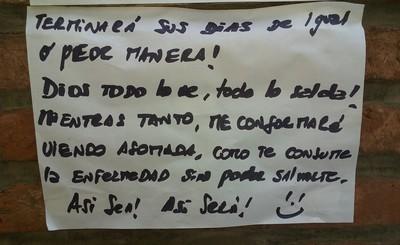 TERMINARÁ SUS DIAS DE IGUAL
O PEOR MANERA!
DIOS TODO LO VE, TODO LO SALDA!
MIENTRAS TANTO, ME CONFORMARÉ
VIENDO ASOMADA, COMO TE CONSUME
LA ENFERMEDAD SIN PODER SALVARTE.
ASI SEA! ASI SERÁ!